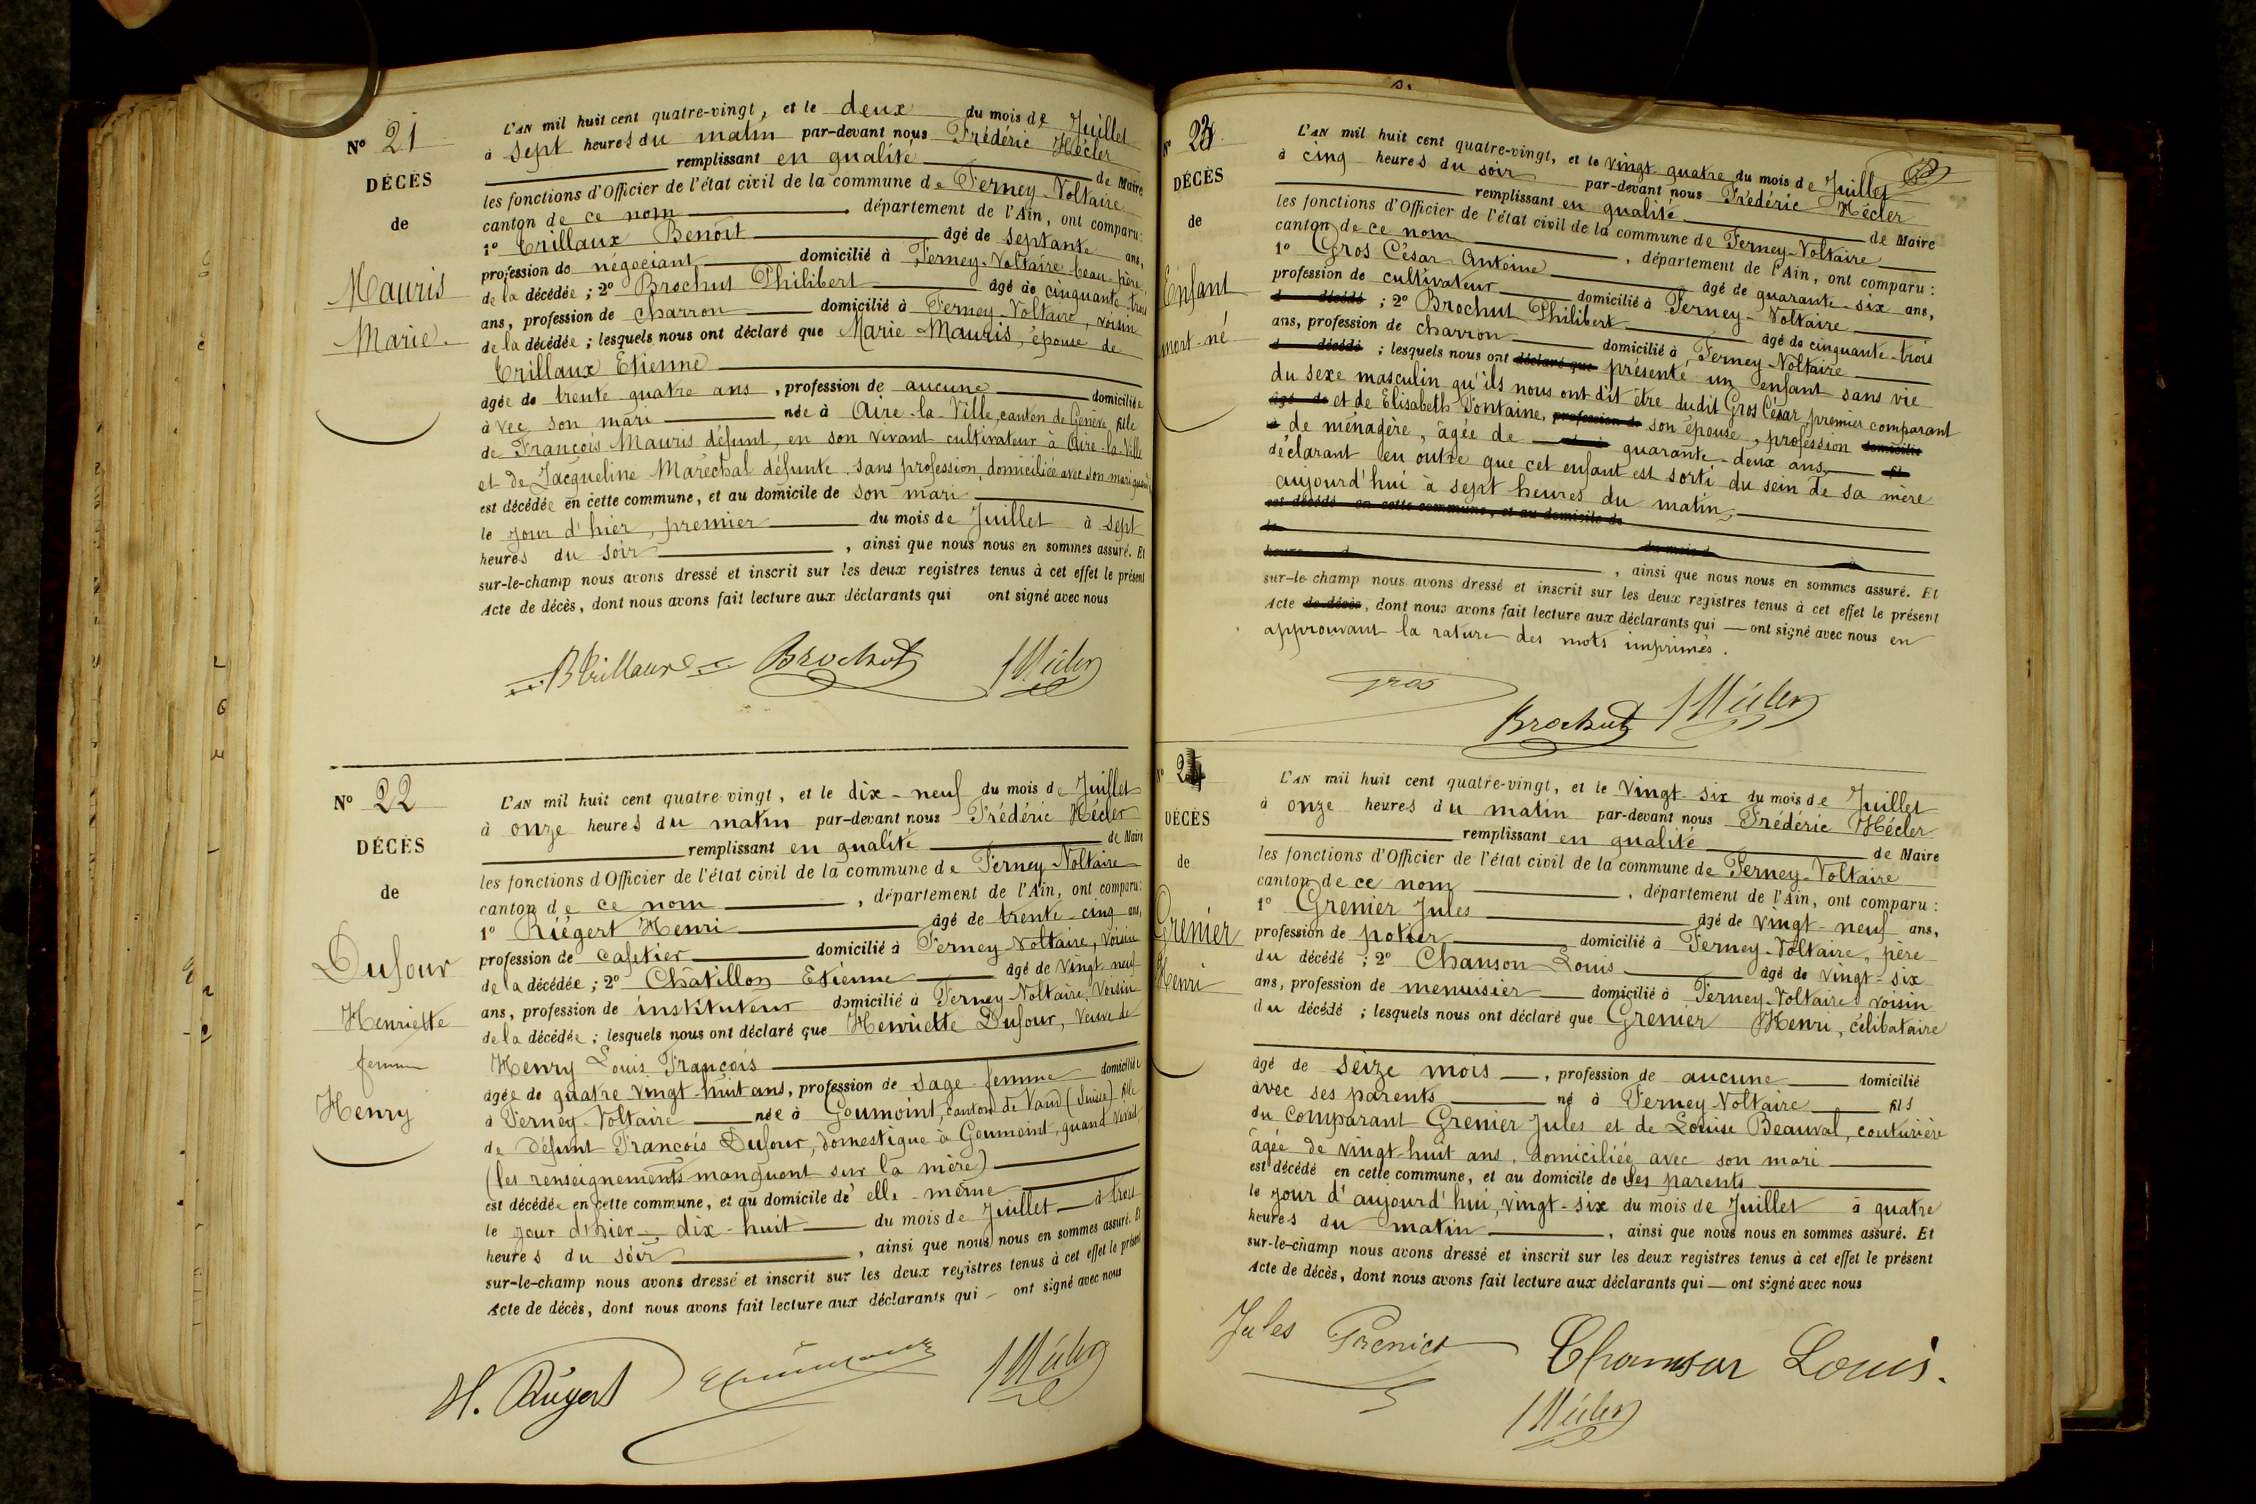 N° 21
DÉCÈS
de
Mauris
Marie
L'AN mil huit cent quatre-vingt, et le deux du mois de Juillet
à sept heures du matin par-devant nous Frédéric Hécler
remplissant en qualité de Maire
les fonctions d'Officier de l'état civil de la commune de Ferney-Voltaire
canton de ce nom, département de l'Ain, ont comparu:
1° Trillaux Benoit âgé de septante ans,
profession de négociant domicilié à Ferney-Voltaire beau-père
de la décédée ; 2° Brochut Philibert âgé de cinquante-trois
ans, profession de charron domicilié à Ferney-Voltaire, voisin
de la décédée ; lesquels nous ont déclaré que Marie Mauris, épouse de
Trillaux Etienne
âgée de trente quatre ans, profession de aucune domiciliée
avec son mari née à Aire-la-Ville, canton de Genève, fille
de François Mauris défunt, en son vivant cultivateur à Aire-la-Ville
et de Jacqueline Maréchal défunte, sans profession, domiciliée avec son mari
est décédée en cette commune, et au domicile de son mari
le jour d'hier, premier du mois de Juillet à sept
heures du soir, ainsi que nous nous en sommes assuré. Et
sur-le-champ nous avons dressé et inscrit sur les deux registres tenus à cet effet le présent
Acte de décès, dont nous avons fait lecture aux déclarants qui ont signé avec nous
BTrillaux Brochut Hécler
N° 22
DÉCÈS
de
Dufour
Henriette
femme
Henry
L'AN mil huit cent quatre-vingt, et le dix-neuf du mois de Juillet
à onze heures du matin par-devant nous Frédéric Hécler
remplissant en qualité de Maire
les fonctions d'Officier de l'état civil de la commune de Ferney-Voltaire
canton de ce nom, département de l'Ain, ont comparu:
1° Riégert Henri âgé de trente-cinq ans,
profession de cafetier domicilié à Ferney-Voltaire, voisin
de la décédée ; 2° Châtillon Etienne âgé de vingt-neuf
ans, profession de instituteur domicilié à Ferney-Voltaire, voisin
de la décédée ; lesquels nous ont déclaré que Henriette Dufour, veuve de
Henry Louis François
âgée de quatre vingt-huit ans, profession de sage-femme domiciliée
à Ferney-Voltaire née à Goumoint, canton de Vaud (Suisse) fille
de défunt François Dufour, domestique à Goumoint, quand vivait,
(les renseignements manquent sur la mère)
est décédée en cette commune, et au domicile de elle-même
le jour d'hier, dix-huit du mois de Juillet à trois
heures du soir, ainsi que nous nous en sommes assuré. Et
sur-le-champ nous avons dressé et inscrit sur les deux registres tenus à cet effet le présent
Acte de décès, dont nous avons fait lecture aux déclarants qui ont signé avec nous
H. Riégert Hécler
N° 23
DÉCÈS
de
Enfant
mort-né
L'AN mil huit cent quatre-vingt, et le vingt-quatre du mois de Juillet
à cinq heures du soir par-devant nous Frédéric Hécler
remplissant en qualité de Maire
les fonctions d'Officier de l'état civil de la commune de Ferney-Voltaire
canton de ce nom, département de l'Ain, ont comparu :
1° Gros César Antoine âgé de quarante-six ans,
profession de cultivateur domicilié à Ferney-Voltaire
d décédé ; 2° Brochut Philibert âgé de cinquante-trois
ans, profession de charron domicilié à Ferney-Voltaire
d décédé ; lesquels nous ont déclaré que présenté un enfant sans vie
du sexe masculin qu'ils nous ont dit être dudit Gros César premier comparant
âgé de et de Elisabeth Fontaine, profession de son épouse, profession domicilié
à de ménagère, âgée de quarante-deux ans, fil
déclarant en outre que cet enfant est sorti du sein de sa mère
aujourd'hui à sept heures du matin,
est décédé en cette commune, et au domicile de
le du mois d
heure d à, ainsi que nous nous en sommes assuré. Et
sur-le-champ nous avons dressé et inscrit sur les deux registres tenus à cet effet le présent
Acte de décès, dont nous avons fait lecture aux déclarants qui ont signé avec nous en
approuvant la rature des mots imprimés.
Gros
Brochut Hécler
N° 24
DÉCÈS
de
Grenier
Henri
L'AN mil huit cent quatre-vingt, et le vingt-six du mois de Juillet
à onze heures du matin par-devant nous Frédéric Hécler
remplissant en qualité de Maire
les fonctions d'Officier de l'état civil de la commune de Ferney-Voltaire
canton de ce nom, département de l'Ain, ont comparu :
1° Grenier Jules âgé de vingt-neuf ans,
profession de potier domicilié à Ferney-Voltaire, père
du décédé ; 2° Chanson Louis âgé de vingt-six
ans, profession de menuisier domicilié à Ferney-Voltaire voisin
du décédé ; lesquels nous ont déclaré que Grenier Henri, célibataire
âgé de seize mois, profession de aucune domicilié
avec ses parents né à Ferney-Voltaire fils
du comparant Grenier Jules et de Louise Beauval, couturière
âgée de vingt-huit ans, domiciliée avec son mari
est décédé en cette commune, et au domicile de ses parents
le jour d'aujourd'hui, vingt-six du mois de Juillet à quatre
heures du matin, ainsi que nous nous en sommes assuré. Et
sur-le-champ nous avons dressé et inscrit sur les deux registres tenus à cet effet le présent
Acte de décès, dont nous avons fait lecture aux déclarants qui — ont signé avec nous
Jules Grenier Chanson Louis.
Hécler